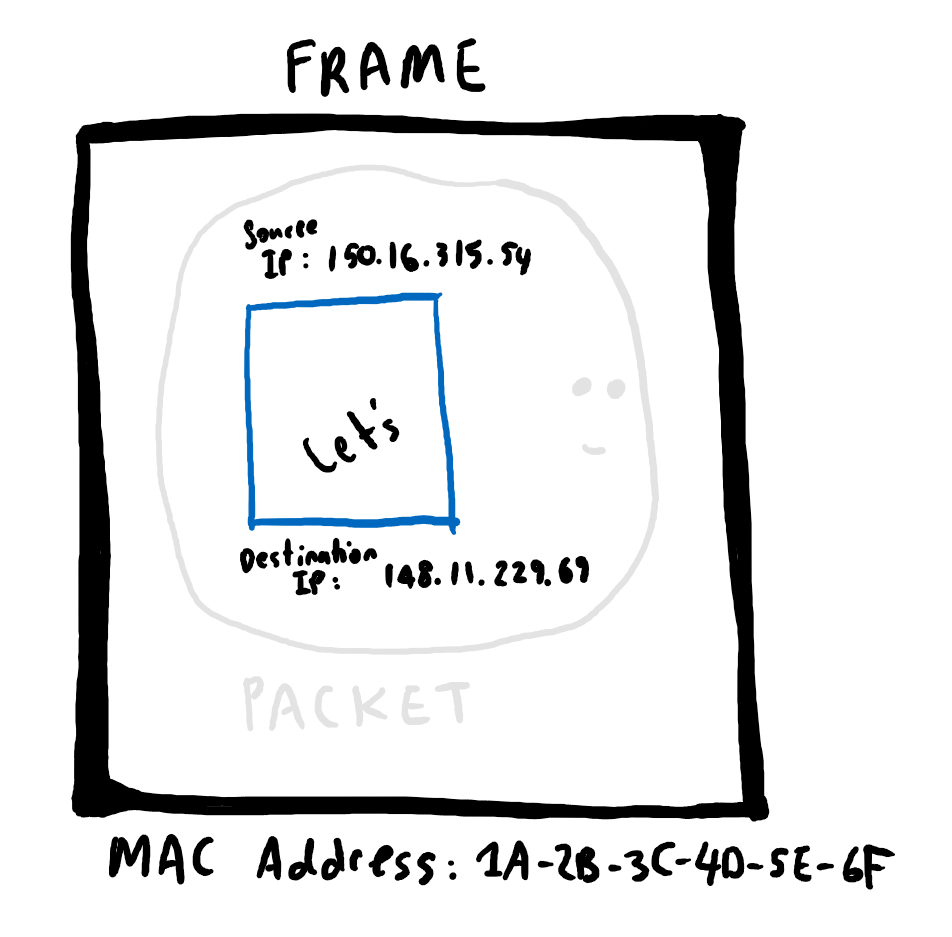 FRAME
Source
IP: 150.16.315.54
Let's
Destination
IP: 148.11.229.69
PACKET
MAC Address: 1A-2B-3C-4D-5E-6F